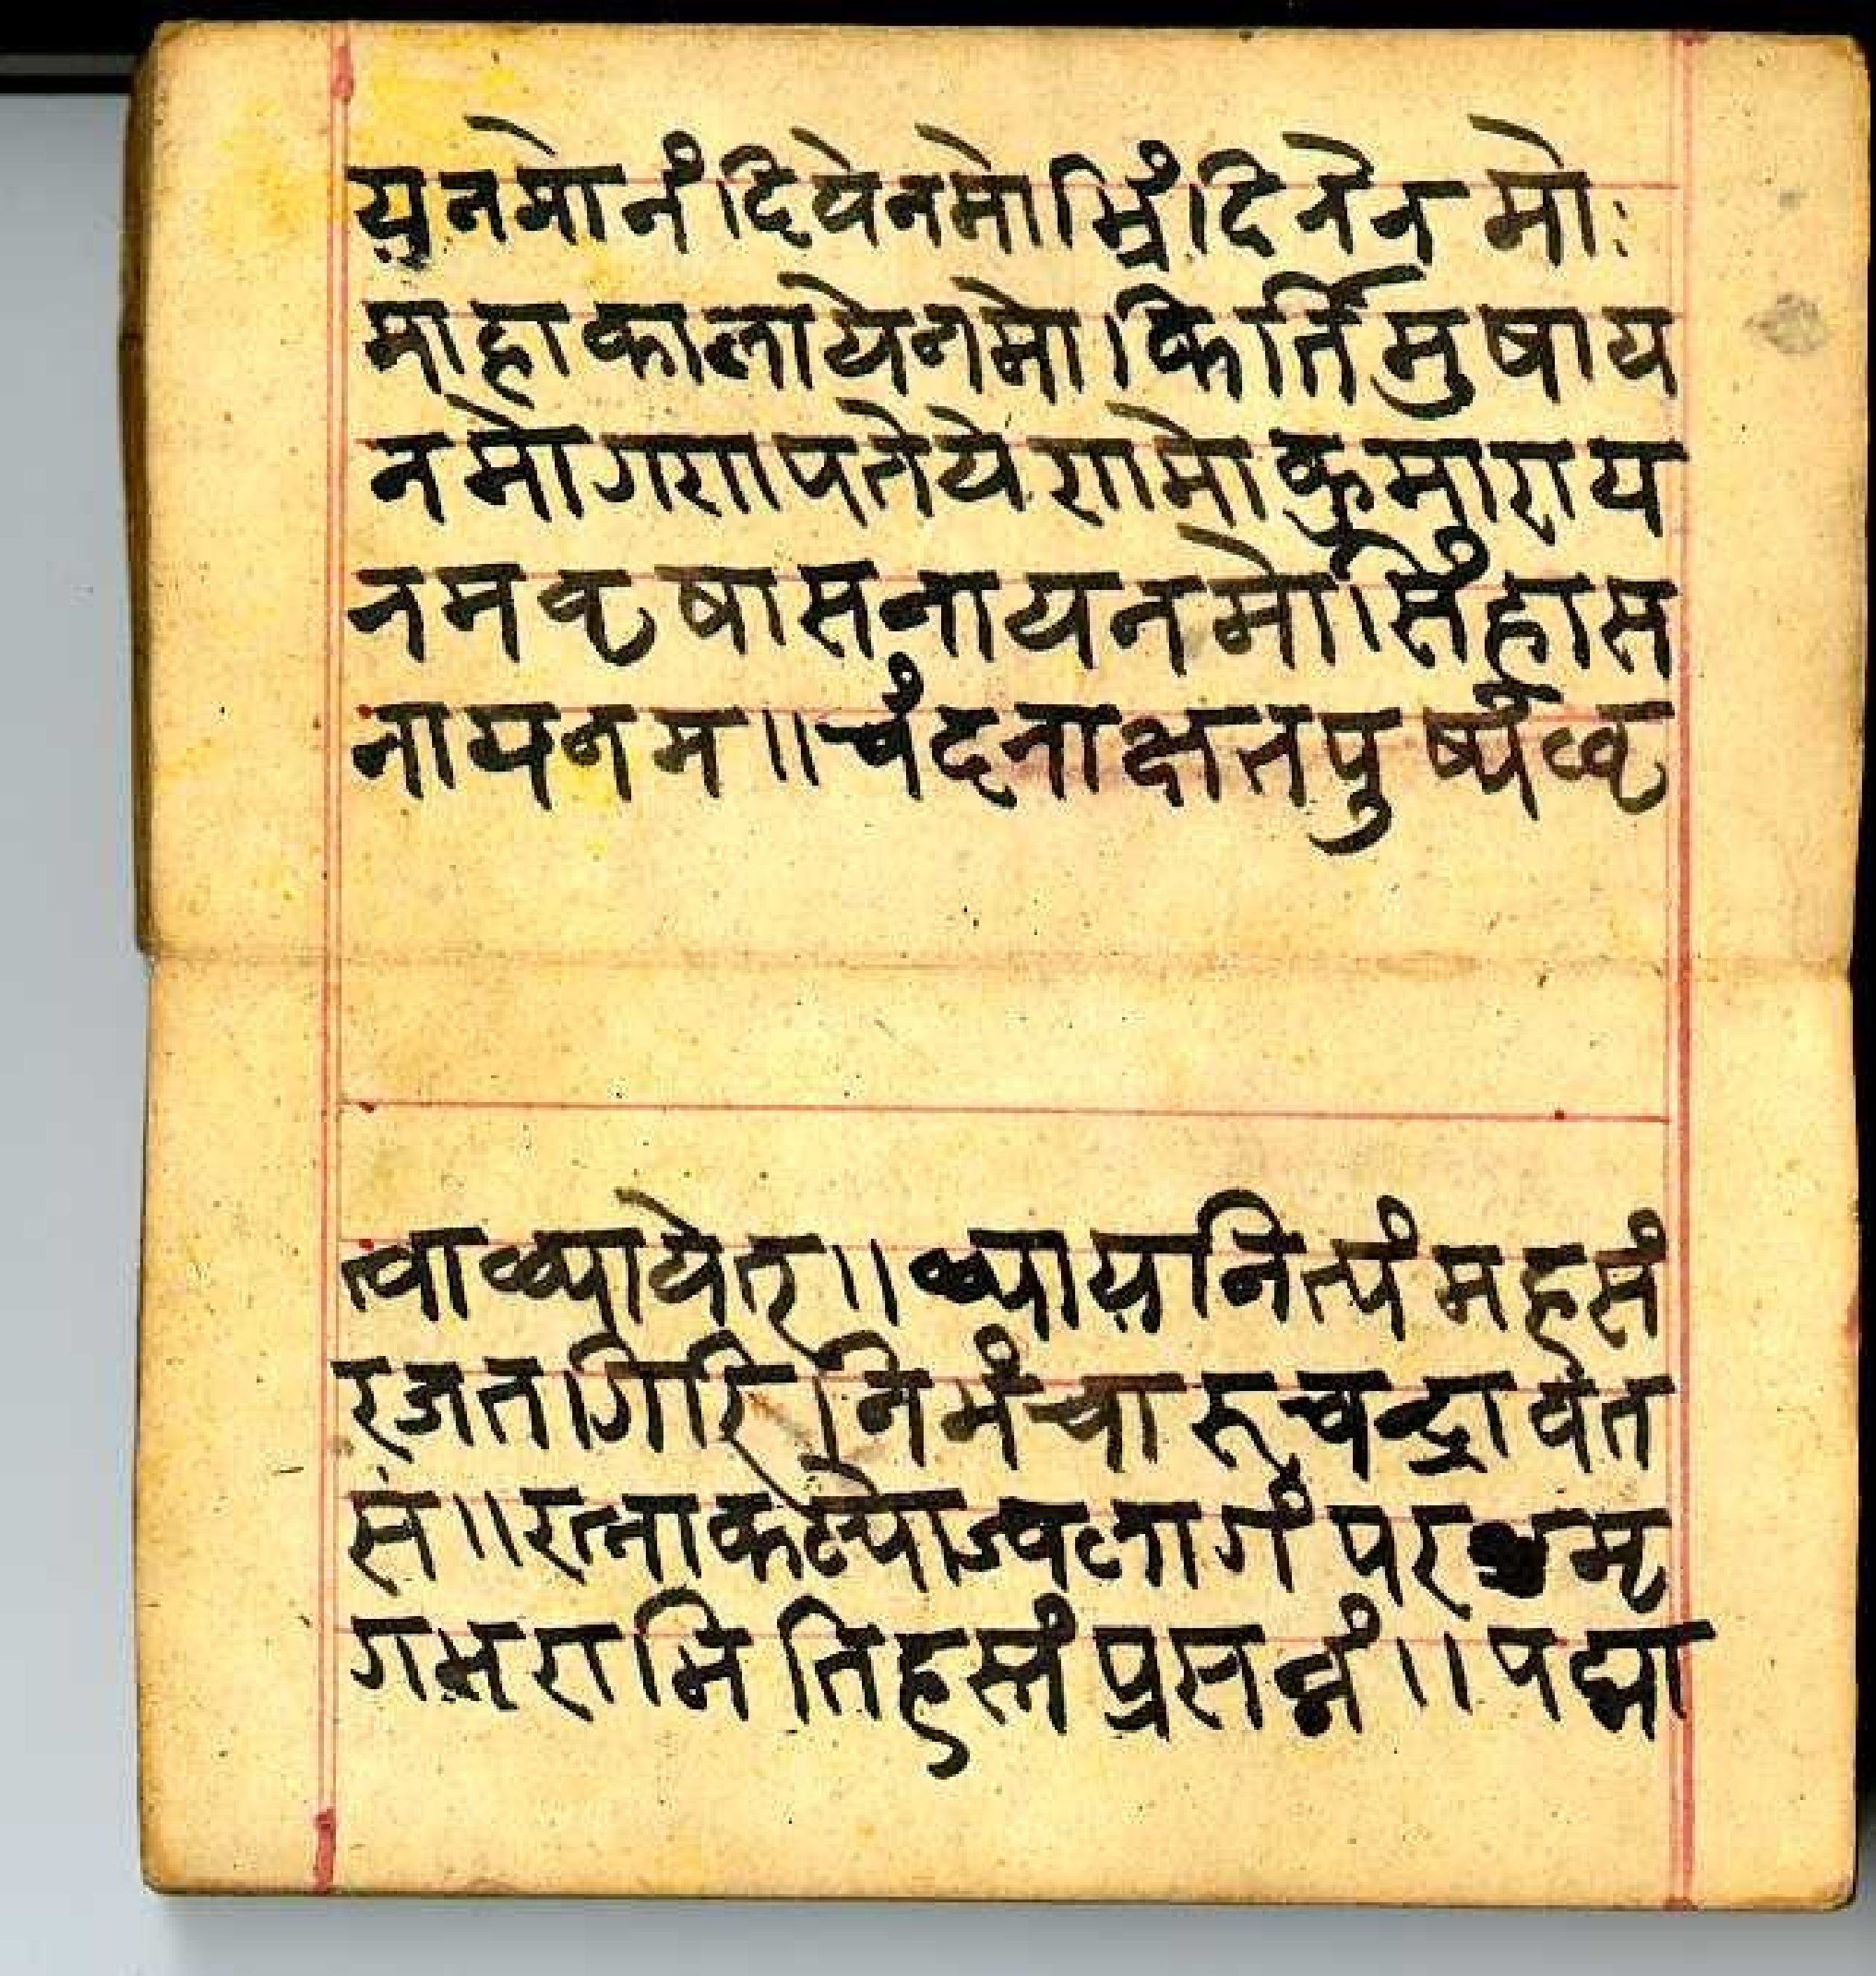 युनमोनंदियेनमोभिृंदिनेनमोः
माहाकालायेनमोकिर्तिमुषाय
नमोगरापतेयेरामोकुमाराय
नमवृषासनायनमोसिंहास
नायनम॥चंदनाक्षतपुष्पंधृ
त्वाध्यायेत्॥ध्यायनित्यंमहेसं
रजतगिरिनिभंचारूचन्द्रावत
सं॥रत्नाकल्पोज्वलागंपर मृ
गभरामितिहस्तंप्रसन्नं॥पद्मा